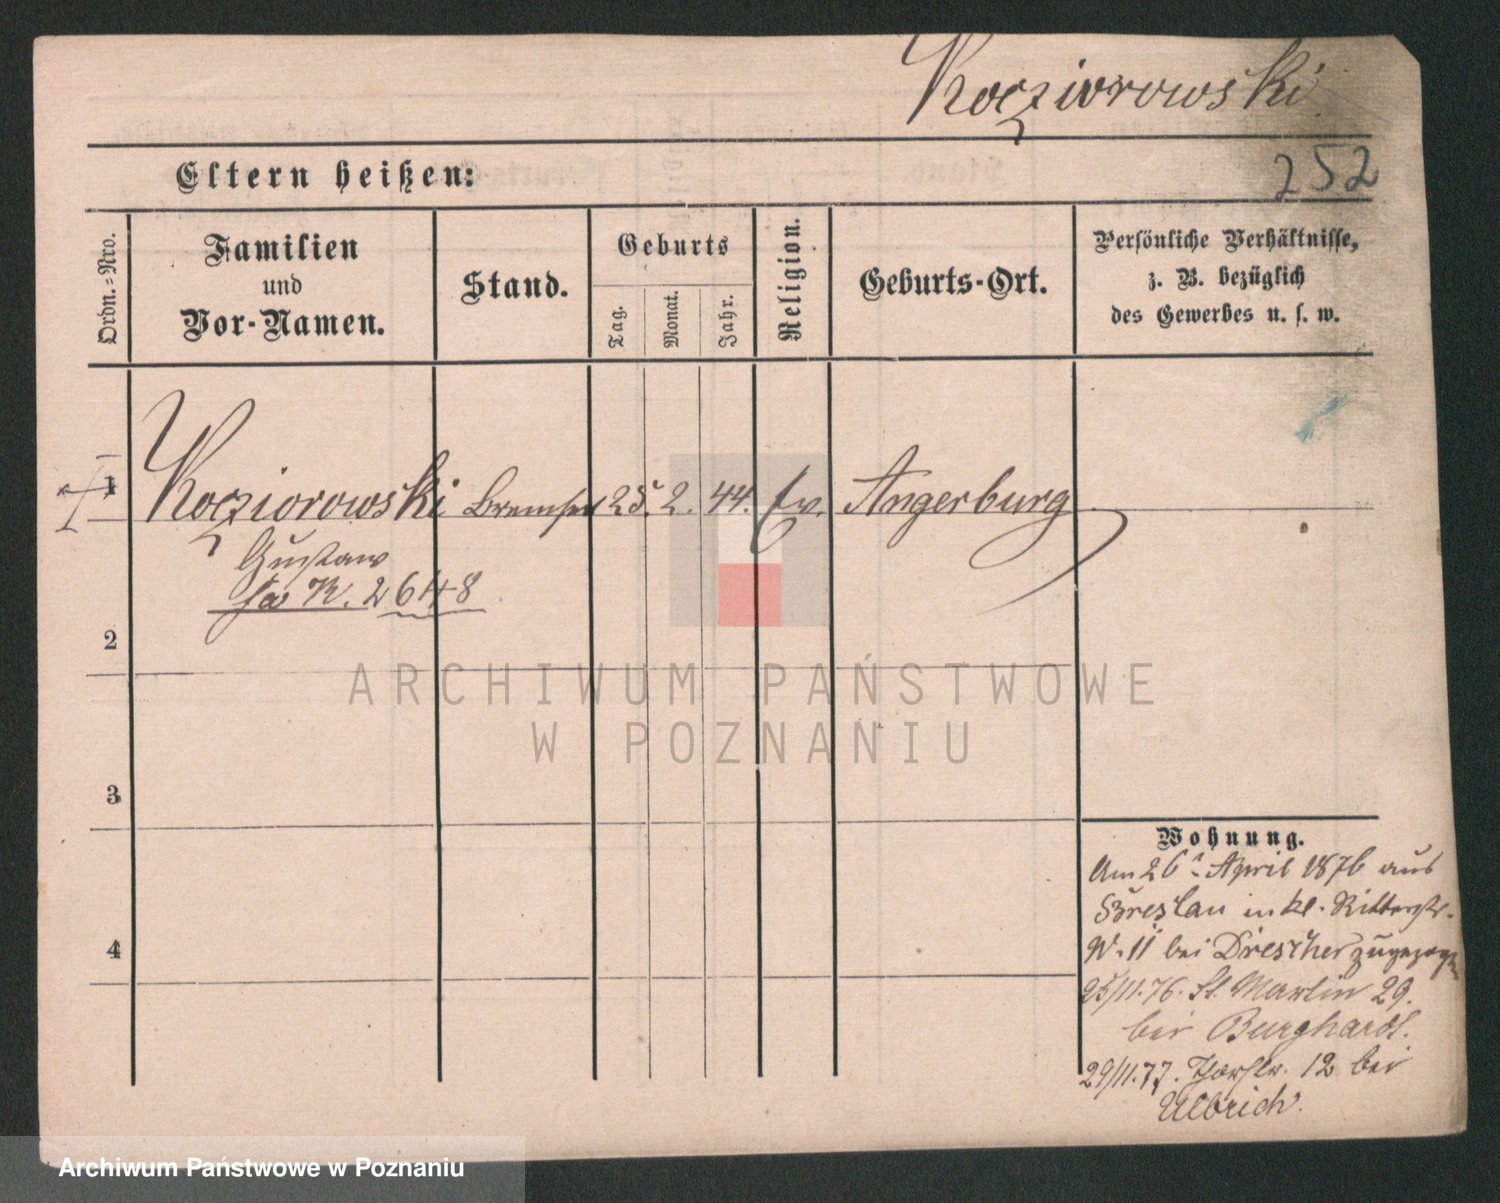 Koczorowski
252
Eltern heißen:
Ordn.-Nro.
Familien
und
Vor-Namen.
Stand.
Geburts
Tag.
Monat.
Jahr.
Religion.
Geburts-Ort.
Persönliche Verhältnisse,
z. B. bezüglich
des Gewerbes u. s. w.
1
Kocziorowski Bremser 25. 2. 44. Ev. Angerburg
Gustaw
K. 2648
2
3
4
Wohnung.
Am 26t April 1876 aus
Breslau in kl. Ritterstr.
N. 11 bei Drescher zugezogen
25/11.76. St. Martin 29.
bei Burghardt.
29/11.77. Thorstr. 12 bei
Ulbrich.
ARCHIWUM PAŃSTWOWE
W POZNANIU
Archiwum Państwowe w Poznaniu